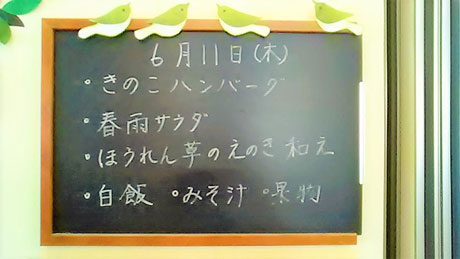 6月11日(木)
・きのこハンバーグ
・春雨サラダ
・ほうれん草のえのき和え
・白飯 ・みそ汁 ・果物